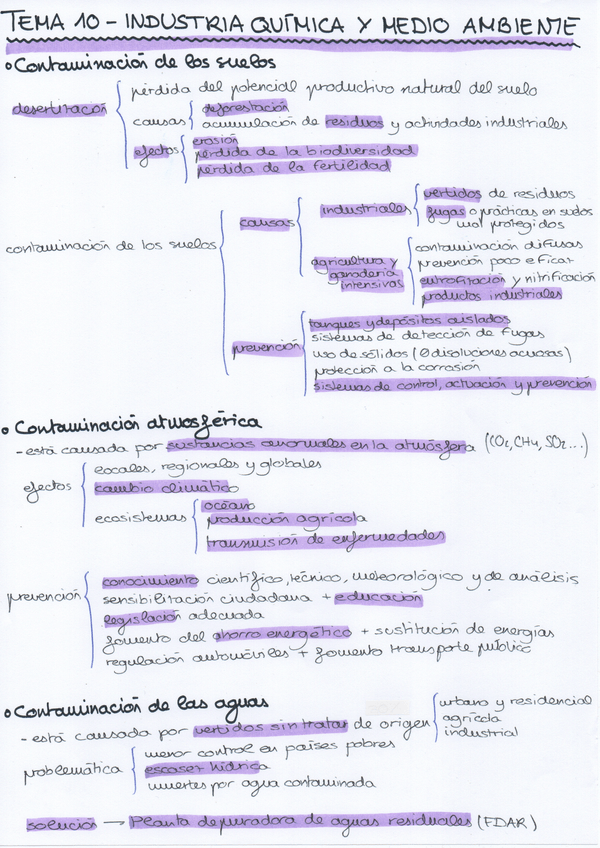 TEMA 10 - INDUSTRIA QUÍMICA Y MEDIO AMBIENTE
• Contaminación de los suelos
desertización
pérdida del potencial productivo natural del suelo
causas
deforestación
acumulación de residuos y actividades industriales
efectos
erosión
pérdida de la biodiversidad
pérdida de la fertilidad
contaminación de los suelos
causas
industriales
vertidos de residuos
fugas o prácticas en suelos
mal protegidos
agricultura y
ganadería
intensivas
contaminación difusas
prevención poco eficaz
eutrofización y nitrificación
productos industriales
prevención
tanques y depósitos aislados
sistemas de detección de fugas
uso de sólidos (Ø disoluciones acuosas)
protección a la corrosión
sistemas de control, actuación y prevención
• Contaminación atmosférica
- está causada por sustancias anormales en la atmósfera (CO2, CH4, SO2...)
efectos
locales, regionales y globales
cambio climático
ecosistemas
océano
producción agrícola
transmisión de enfermedades
prevención
conocimiento científico, técnico, meteorológico y de análisis
sensibilización ciudadana + educación
legislación adecuada
fomento del ahorro energético + sustitución de energías
regulación automóviles + fomento transporte público
• Contaminación de las aguas
- está causada por vertidos sin tratar de origen
urbano y residencial
agrícola
industrial
problemática
menor control en países pobres
escasez hídrica
muertes por agua contaminada
solución → Planta depuradora de aguas residuales (EDAR)